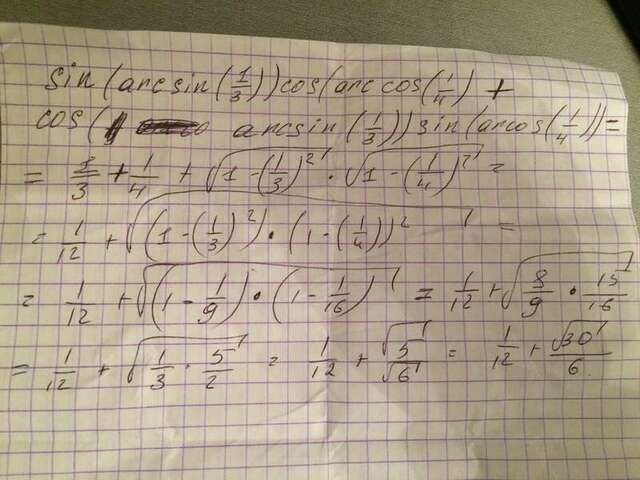 sin(arcsin(1/3))cos(arccos(1/4)) +
cos(arcsin(1/3))sin(arcos(1/4)) =
= 1/3 + 1/4 + √(1-(1/3)²) · √(1-(1/4)²) =
= 1/12 + √((1-(1/3)²) · (1-(1/4))² =
= 1/12 + √((1-1/9) · (1-1/16) = 1/12 + √(8/9 · 15/16)
= 1/12 + √(1/3 · 5/2) = 1/12 + √(5/6) = 1/12 + √30/6